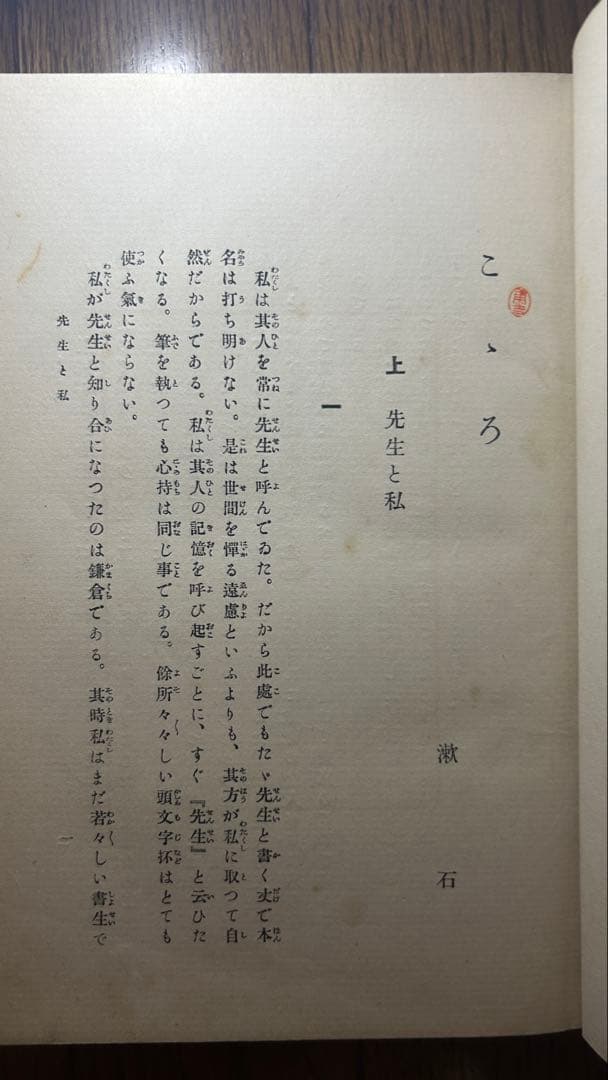 こゝろ
漱石
上 先生と私
一
私は其人を常に先生と呼んでゐた。だから此處でもたゞ先生と書く丈で本
名は打ち明けない。是は世間を憚る遠慮といふよりも、其方が私に取つて自
然だからである。私は其人の記憶を呼び起すごとに、すぐ『先生』と云ひた
くなる。筆を執つても心持は同じ事である。餘所々々しい頭文字抔はとても
使ふ氣にならない。
私が先生と知り合になつたのは鎌倉である。其時私はまだ若々しい書生で
先生と私
一